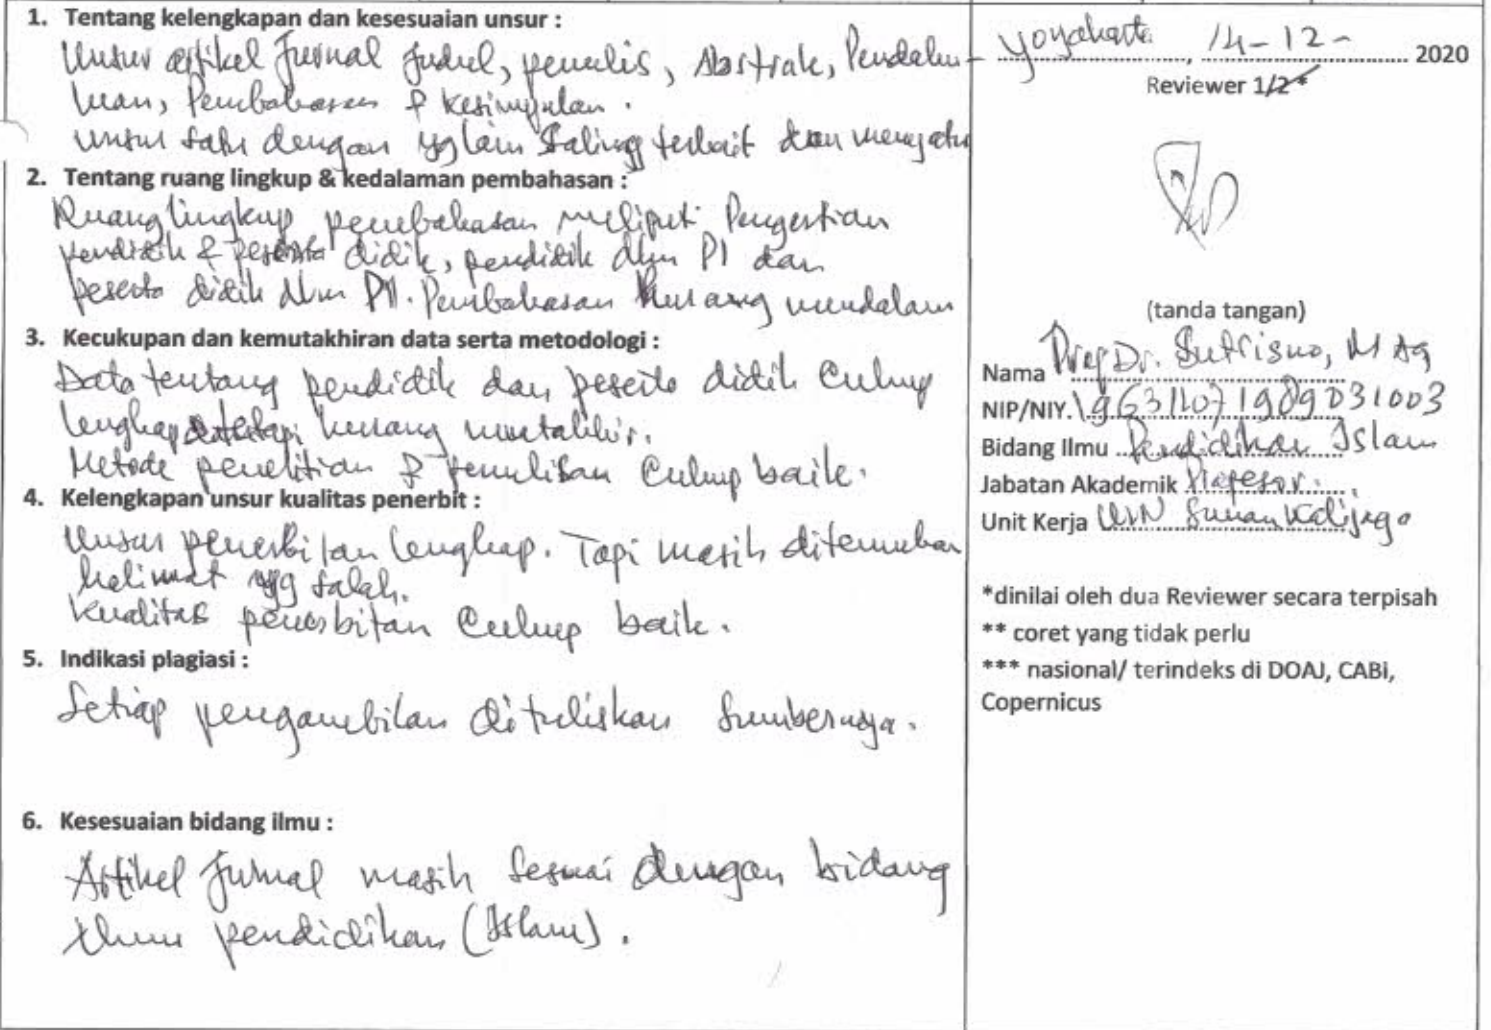 1. Tentang kelengkapan dan kesesuaian unsur :
Unsur artikel Jurnal Judul, penulis, Abstrak, Pendahu-
luan, Pembahasan & kesimpulan.
unsur satu dengan yg lain saling terkait dan menyatu
2. Tentang ruang lingkup & kedalaman pembahasan :
Ruang lingkup pembahasan meliputi Pengertian
pendidik & peserta didik, pendidik dlm PI dan
peserta didik dlm PI. Pembahasan kurang mendalam
3. Kecukupan dan kemutakhiran data serta metodologi :
Data tentang pendidik dan peserta didik cukup
lengkap tetapi kurang mutakhir.
Metode penelitian & penulisan cukup baik.
4. Kelengkapan unsur kualitas penerbit :
Unsur penerbitan lengkap. Tapi masih ditemukan
kalimat yg salah.
kualitas penerbitan cukup baik.
5. Indikasi plagiasi :
Setiap pengambilan dituliskan sumbernya.
6. Kesesuaian bidang ilmu :
Artikel Jurnal masih sesuai dengan bidang
ilmu pendidikan (Islam).
Yogyakarta, 14-12- 2020
Reviewer 1/2*
(tanda tangan)
Nama Prof Dr. Sutrisno, M Ag
NIP/NIY. 196311071989031003
Bidang Ilmu Pendidikan Islam
Jabatan Akademik Profesor.
Unit Kerja UIN Sunan Kalijaga
*dinilai oleh dua Reviewer secara terpisah
** coret yang tidak perlu
*** nasional/ terindeks di DOAJ, CABI,
Copernicus